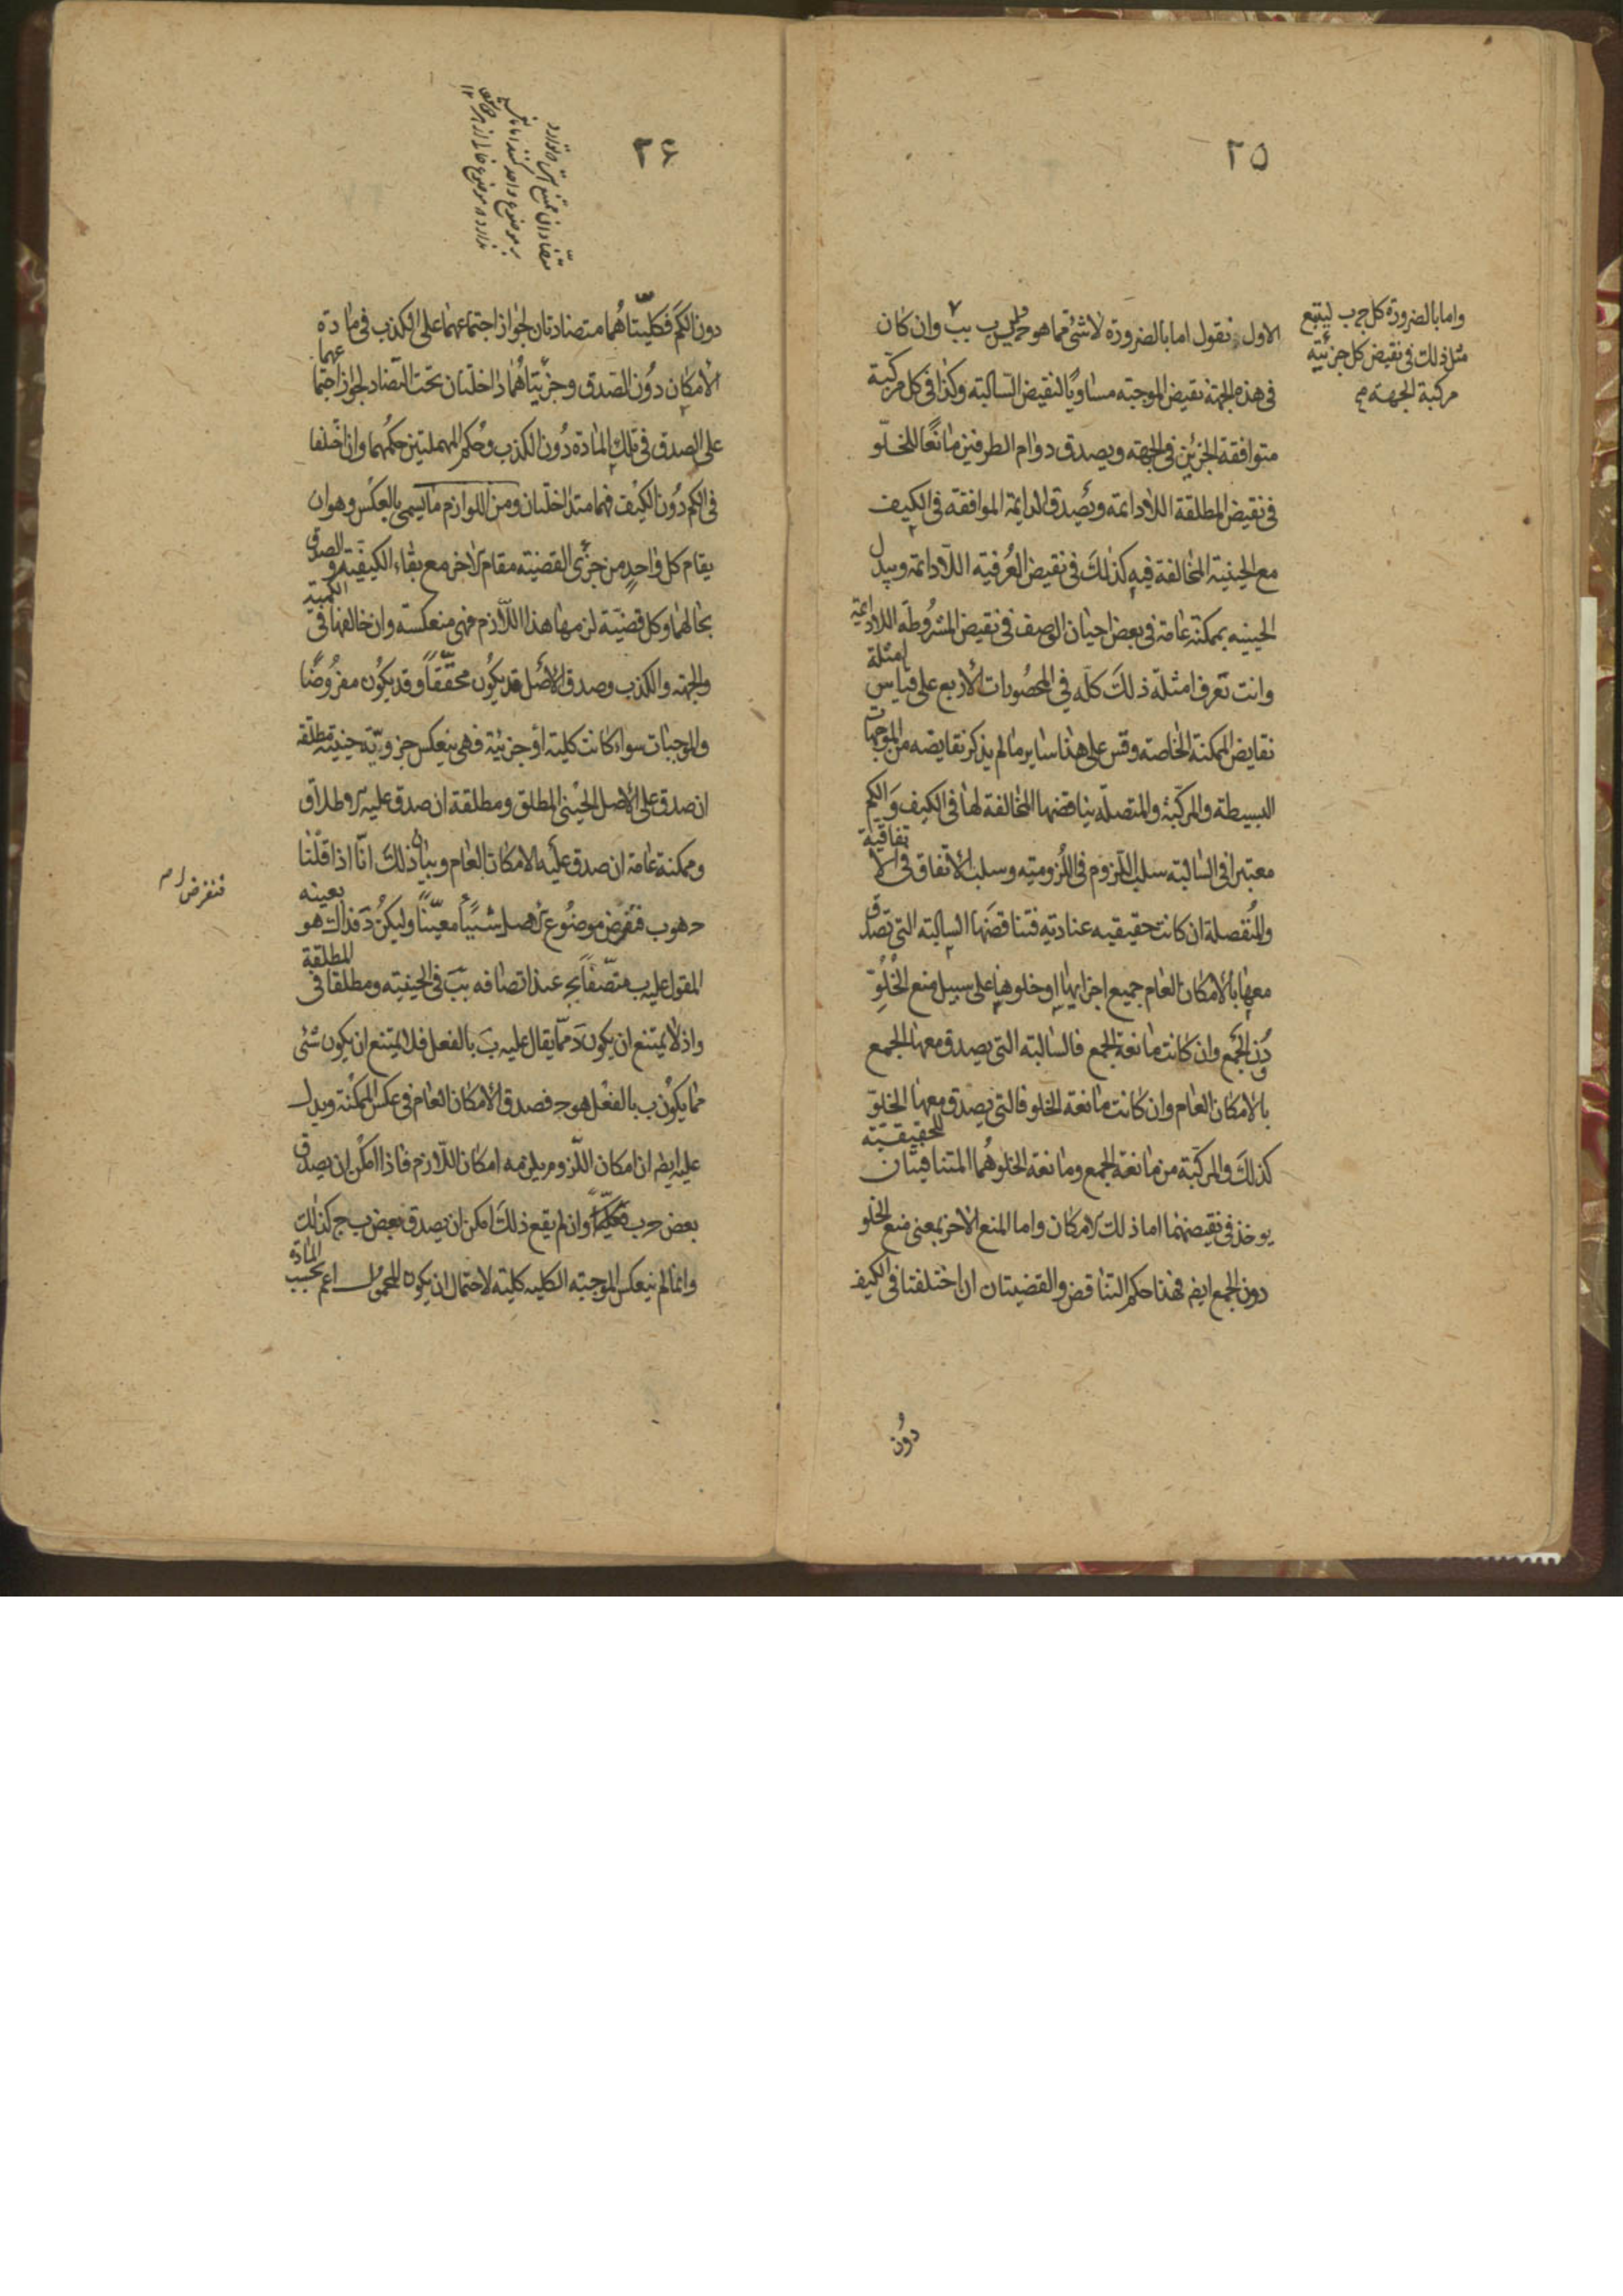 ٢٥
الاول نقول اما بالضرورة لا شئ مما هو ج ليس ب ب وان كان
واما بالضرورة كل ج ب ليتبع
مثل ذلك في نقيض كل جزئية
مركبة الجهة
في هذه الجهة نقيض الموجبة مساويا لنقيض السالبة وكذا في كل مركبة
متوافقة الجزئين في الجهة ويصدق دوام الطرفين مانعا للخلو
في نقيض المطلقة اللادائمة ويصدق الدائمة الموافقة في الكيف
مع الحينية المخالفة فيه كذلك في نقيض العرفية اللادائمة ويبدل
الحينيه بممكنة عامة في بعض احيان الوصف في نقيض المشروطة اللادائمة
وانت تعرف امثلة ذلك كله في المحصورات الأربع على قياس
امثلة
نقايض الممكنة الخاصة وقس على هذا ساير ما لم يذكر نقايضه من الموجهات
البسيطة والمركبة والمتصلة يناقضها المخالفة لها في الكيف والكم
معتبرا في السالبة سلب اللزوم في اللزومية وسلب الاتفاق في الاتفاقية
والمنفصلة ان كانت حقيقيه عنادية فتناقضها السالبة التي تصدق
معها بالأمكان العام جميع اجزايها او خلوها على سبيل منع الخلو
دون الجمع وان كانت مانعة الجمع فالسالبة التي يصدق معها الجمع
بالامكان العام وان كانت مانعة الخلو فالتي يصدق معها الخلو
كذلك والمركبة من مانعة الجمع ومانعة الخلو هما المتنافيتان
للحقيقيّة
يوخذ في نقيضهما اما ذلك الامكان واما المنع الاخر بمعنى منع الخلو
دون الجمع ايضا فهذا حكم التناقض والقضيتان ان اختلفتا في الكيف
دون
٢٦
دون الكم فكليتاهما متضادتان لجواز اجتماعهما على الكذب في مادة
الأمكان دون الصدق وجزئيتاهما داخلتان تحت التضاد لجواز اجتماعهما
على الصدق في تلك المادة دون الكذب وحكم المهملتين حكمهما وان اختلفا
في الكم دون الكيف فهما متداخلتان ومن اللوازم ما يسمى بالعكس وهو ان
يقام كل واحد من جزئي القضية مقام الاخر مع بقاء الكيفية والصدق
بحالهما وكل قضية لزمها هذا اللازم فهي منعكسة وان خالفها في
الكمية
والجهة والكذب وصدق الأصل قد يكون محققا وقد يكون مفروضا
والموجبات سواء كانت كلية او جزئية فهي ينعكس جزويّة حينية مطلقة
ان صدق على الاصل الحيني المطلق ومطلقة ان صدق عليه الاطلاق
وممكنة عامة ان صدق عليه الامكان العام وبيان ذلك انا اذا قلنا
ج هو ب فنفرض موضوع الاصل شيئا معينا وليكن د فذاك هو
بعينه
فنفرض
المقول عليه ب متصفا بج عند اتصافه بب في الحينية ومطلقا في
المطلقة
واذ لا يمتنع ان يكون د مما يقال عليه ب بالفعل فلا يمتنع ان يكون شئ
مما يكون ب بالفعل هو ج فصدق الأمكان العام في عكس الممكنة ويدل
عليه ايضا ان امكان اللزوم يلزمه امكان اللازم فاذا امكن ان يصدق
بعض ج ب وان لم يقع ذلك امكن ان يصدق بعض ب ج كذلك
وانما لم ينعكس الموجبة الكليه كلية لاحتمال ان يكون المحمول اعم بحسب
المادة